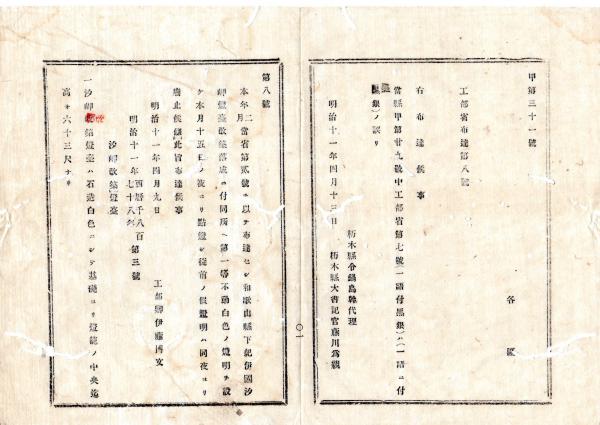 甲第三十一號
各區
工部省布達第八號
右布達候事
當縣甲第廿九號中工部省第七號(一語付黒銀)ハ(一語ニ付
黒銀)ノ誤リ
明治十一年四月十三日
栃木縣令鍋島幹代理
栃木縣大書記官藤川爲親
第八號
本年二月當省第貳號ヲ以テ布達セシ和歌山縣下紀伊國汐
岬燈臺改築落成ニ付同所ヘ第一等不動白色ノ燈明ヲ設
ケ本月十五日ノ夜ヨリ點燈シ從前ノ假燈明ハ同夜ヨリ
廢止候條此旨布達候事
明治十一年四月九日
工部卿伊藤博文
明治十一年西暦千八百七十八年第三號
汐岬改築燈臺
一汐岬改築燈臺ハ石造白色ニシテ基礎ヨリ燈籠ノ中央迄
高サ六十三尺ナリ